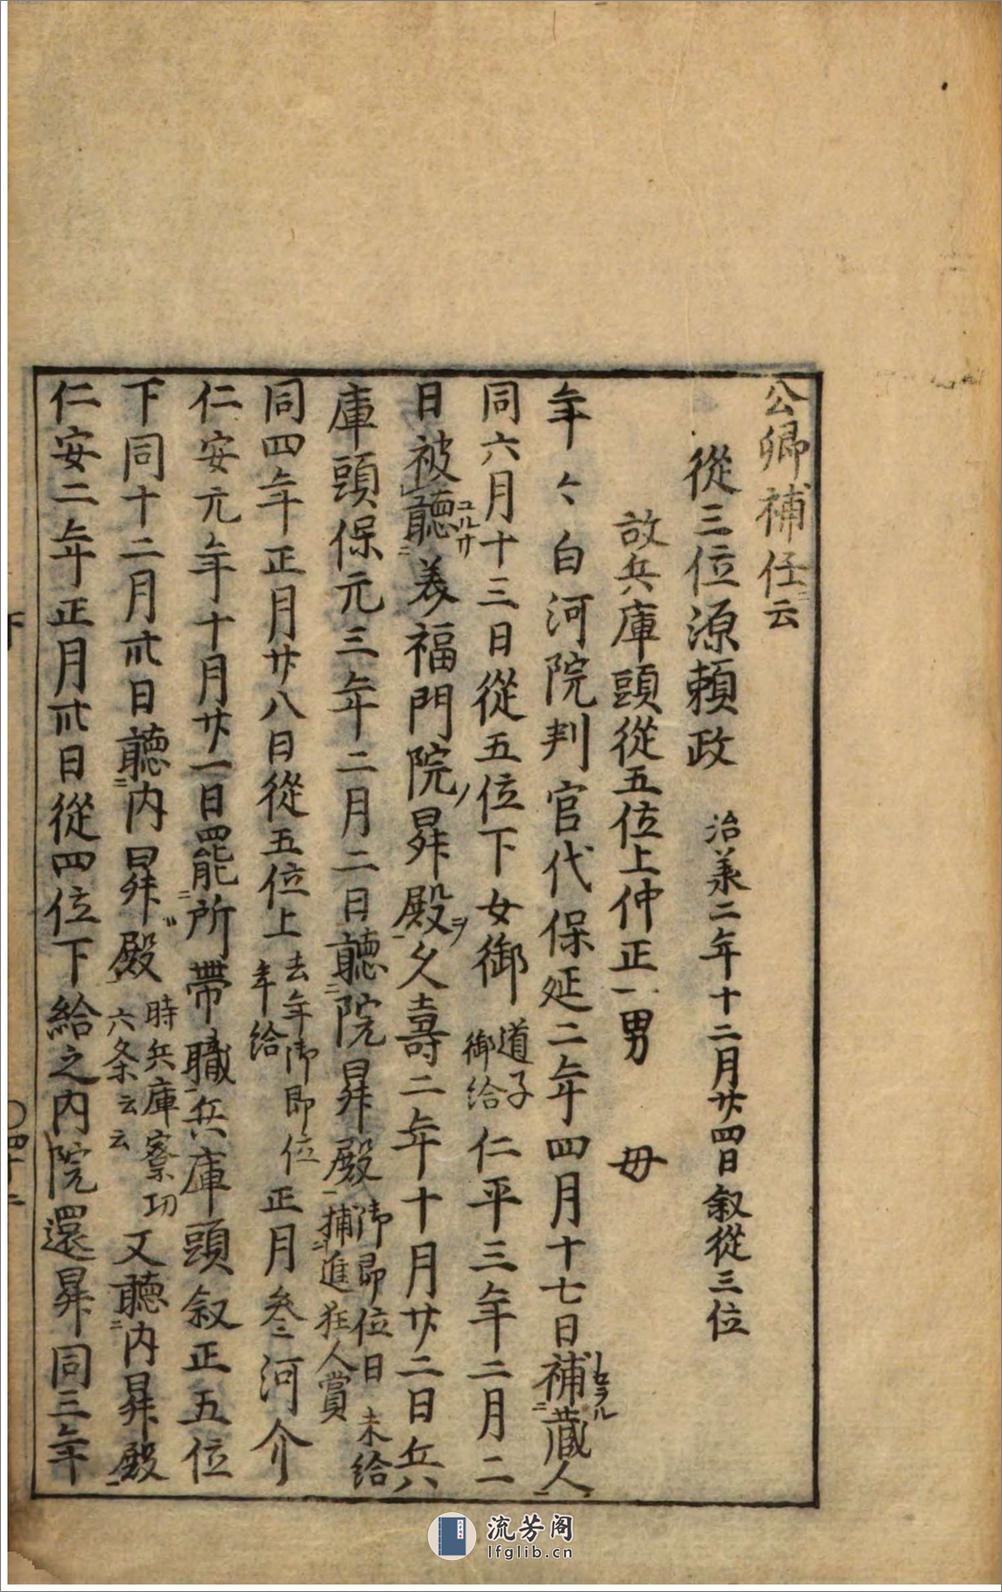 公卿補任云
從三位源頼政 治羕二年十二月廿四日叙從三位
故兵庫頭從五位上仲正一男 母
年々白河院判官代保延二年四月十七日補蔵人
同六月十三日從五位下女御道子御給仁平三年二月二
日被聴羙福門院昇殿久壽二年十月廿二日兵
庫頭保元三年二月二日聴院昇殿御即位日未給捕進狂人賞
同四年正月廿八日從五位上去年御即位年給正月叄河介
仁安元年十月廿一日罷所帯職兵庫頭叙正五位
下同十二月卅日聴内昇殿時兵庫寮功六条云云又聴内昇殿
仁安二年正月卅日從四位下給之内院還昇同三年
流芳阁
lfglib.cn